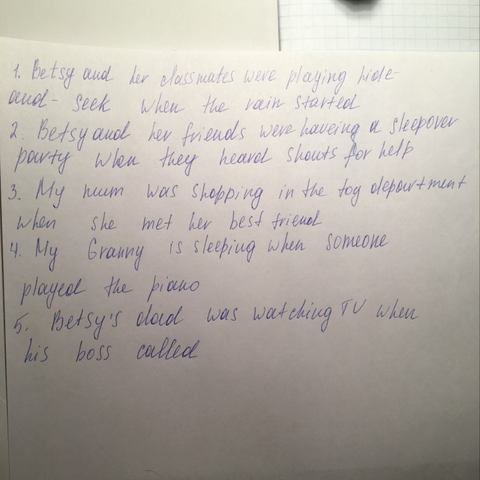 1. Betsy and her classmates were playing hide-
and-seek when the rain started
2. Betsy and her friends were haveing a sleepover
party when they heard shouts for help
3. My mum was shopping in the toy department
when she met her best friend
4. My Granny is sleeping when someone
played the piano
5. Betsy's dad was watching TV when
his boss called